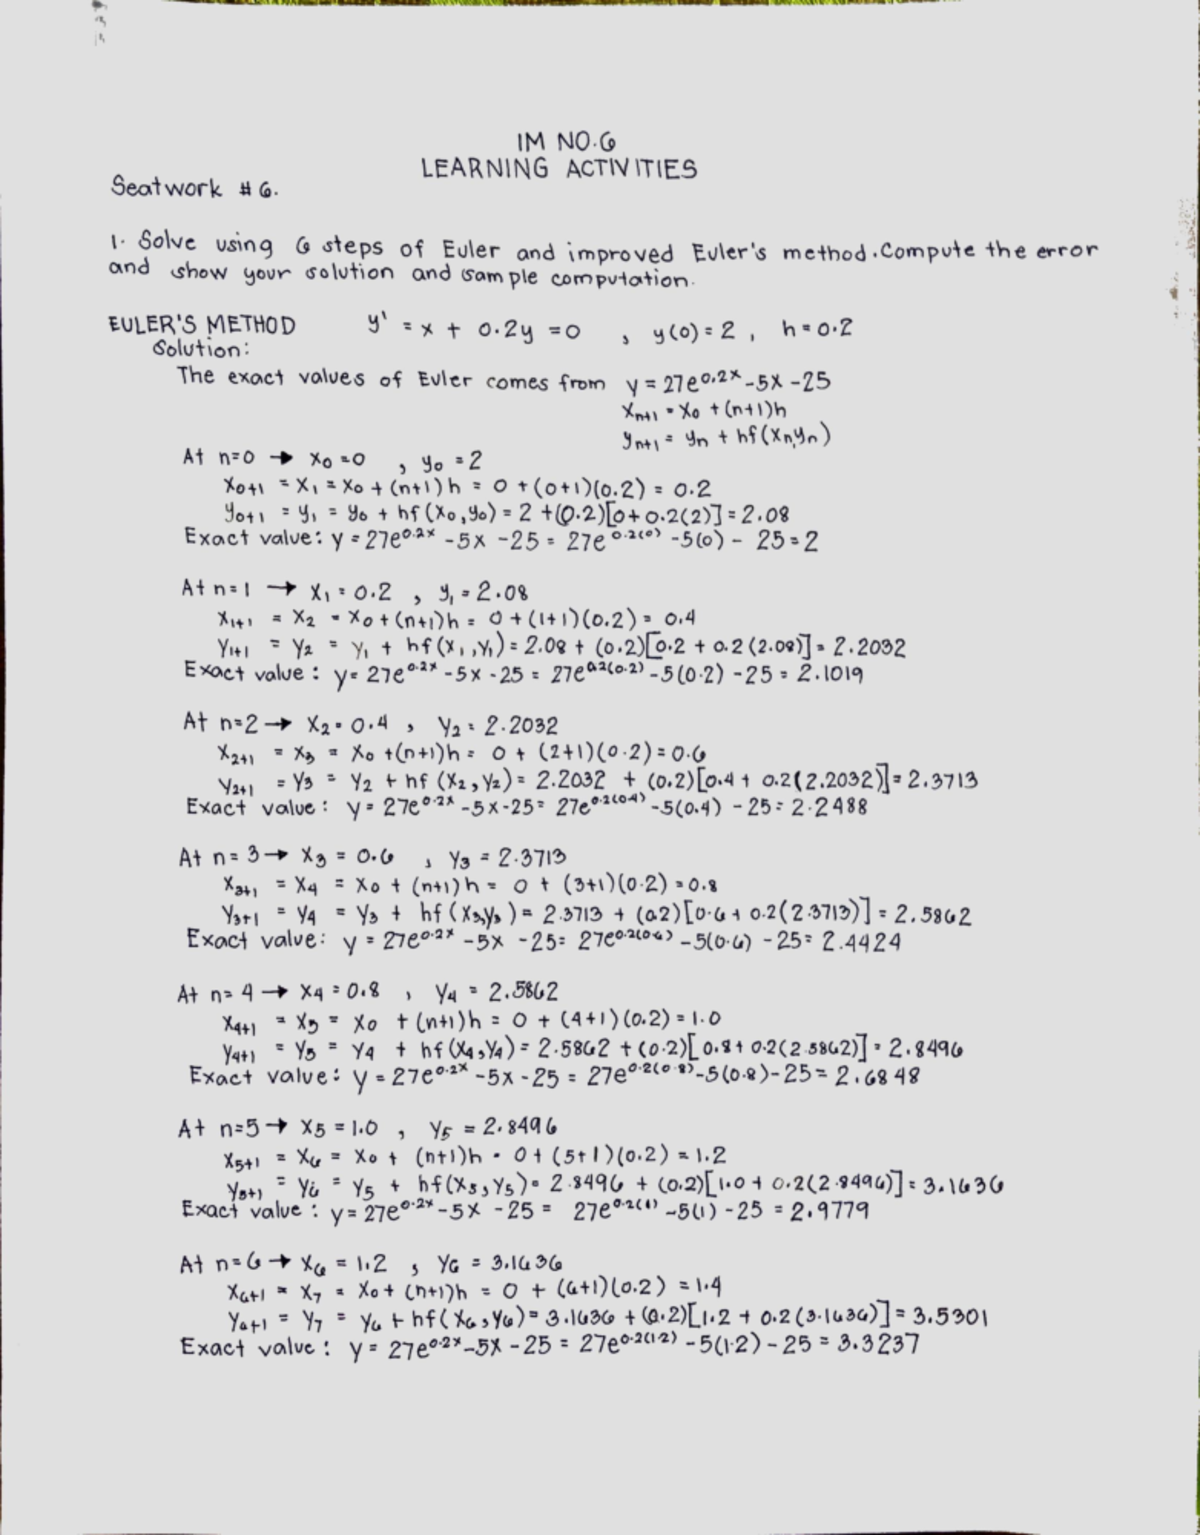 IM NO.6
LEARNING ACTIVITIES
Seatwork #6.
1. Solve using 6 steps of Euler and improved Euler's method. Compute the error
and show your solution and sample computation.
EULER'S METHOD y' = x + 0.2y = 0 , y(0) = 2 , h = 0.2
Solution:
The exact values of Euler comes from y = 27e^0.2x - 5x - 25
Xn+1 = X0 + (n+1)h
Yn+1 = Yn + hf(Xn,Yn)
At n=0 → X0 = 0 , Y0 = 2
X0+1 = X1 = X0 + (n+1)h = 0 + (0+1)(0.2) = 0.2
Y0+1 = Y1 = Y0 + hf(X0,Y0) = 2 + (0.2)[0 + 0.2(2)] = 2.08
Exact value: y = 27e^0.2x - 5x - 25 = 27e^0.2(0) - 5(0) - 25 = 2
At n=1 → X1 = 0.2 , Y1 = 2.08
X1+1 = X2 = X0 + (n+1)h = 0 + (1+1)(0.2) = 0.4
Y1+1 = Y2 = Y1 + hf(X1,Y1) = 2.08 + (0.2)[0.2 + 0.2(2.08)] = 2.2032
Exact value: y = 27e^0.2x - 5x - 25 = 27e^0.2(0.2) - 5(0.2) - 25 = 2.1019
At n=2 → X2 = 0.4 , Y2 = 2.2032
X2+1 = X3 = X0 + (n+1)h = 0 + (2+1)(0.2) = 0.6
Y2+1 = Y3 = Y2 + hf(X2,Y2) = 2.2032 + (0.2)[0.4 + 0.2(2.2032)] = 2.3713
Exact value: y = 27e^0.2x - 5x - 25 = 27e^0.2(0.4) - 5(0.4) - 25 = 2.2488
At n=3 → X3 = 0.6 , Y3 = 2.3713
X3+1 = X4 = X0 + (n+1)h = 0 + (3+1)(0.2) = 0.8
Y3+1 = Y4 = Y3 + hf(X3,Y3) = 2.3713 + (0.2)[0.6 + 0.2(2.3713)] = 2.5862
Exact value: y = 27e^0.2x - 5x - 25 = 27e^0.2(0.6) - 5(0.6) - 25 = 2.4424
At n=4 → X4 = 0.8 , Y4 = 2.5862
X4+1 = X5 = X0 + (n+1)h = 0 + (4+1)(0.2) = 1.0
Y4+1 = Y5 = Y4 + hf(X4,Y4) = 2.5862 + (0.2)[0.8 + 0.2(2.5862)] = 2.8496
Exact value: y = 27e^0.2x - 5x - 25 = 27e^0.2(0.8) - 5(0.8) - 25 = 2.6848
At n=5 → X5 = 1.0 , Y5 = 2.8496
X5+1 = X6 = X0 + (n+1)h = 0 + (5+1)(0.2) = 1.2
Y5+1 = Y6 = Y5 + hf(X5,Y5) = 2.8496 + (0.2)[1.0 + 0.2(2.8496)] = 3.1636
Exact value: y = 27e^0.2x - 5x - 25 = 27e^0.2(1) - 5(1) - 25 = 2.9779
At n=6 → X6 = 1.2 , Y6 = 3.1636
X6+1 = X7 = X0 + (n+1)h = 0 + (6+1)(0.2) = 1.4
Y6+1 = Y7 = Y6 + hf(X6,Y6) = 3.1636 + (0.2)[1.2 + 0.2(3.1636)] = 3.5301
Exact value: y = 27e^0.2x - 5x - 25 = 27e^0.2(1.2) - 5(1.2) - 25 = 3.3237